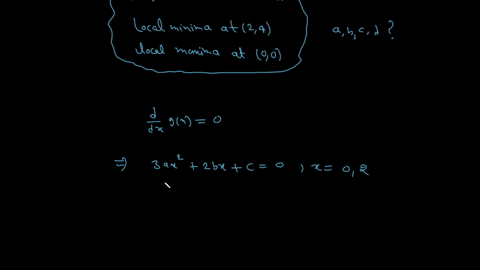 Local minima at (2,4)
a,b,c,d ?
Local maxima at (0,0)
d/dx g(x) = 0
⇒ 3ax² + 2bx + c = 0 , x = 0, 2